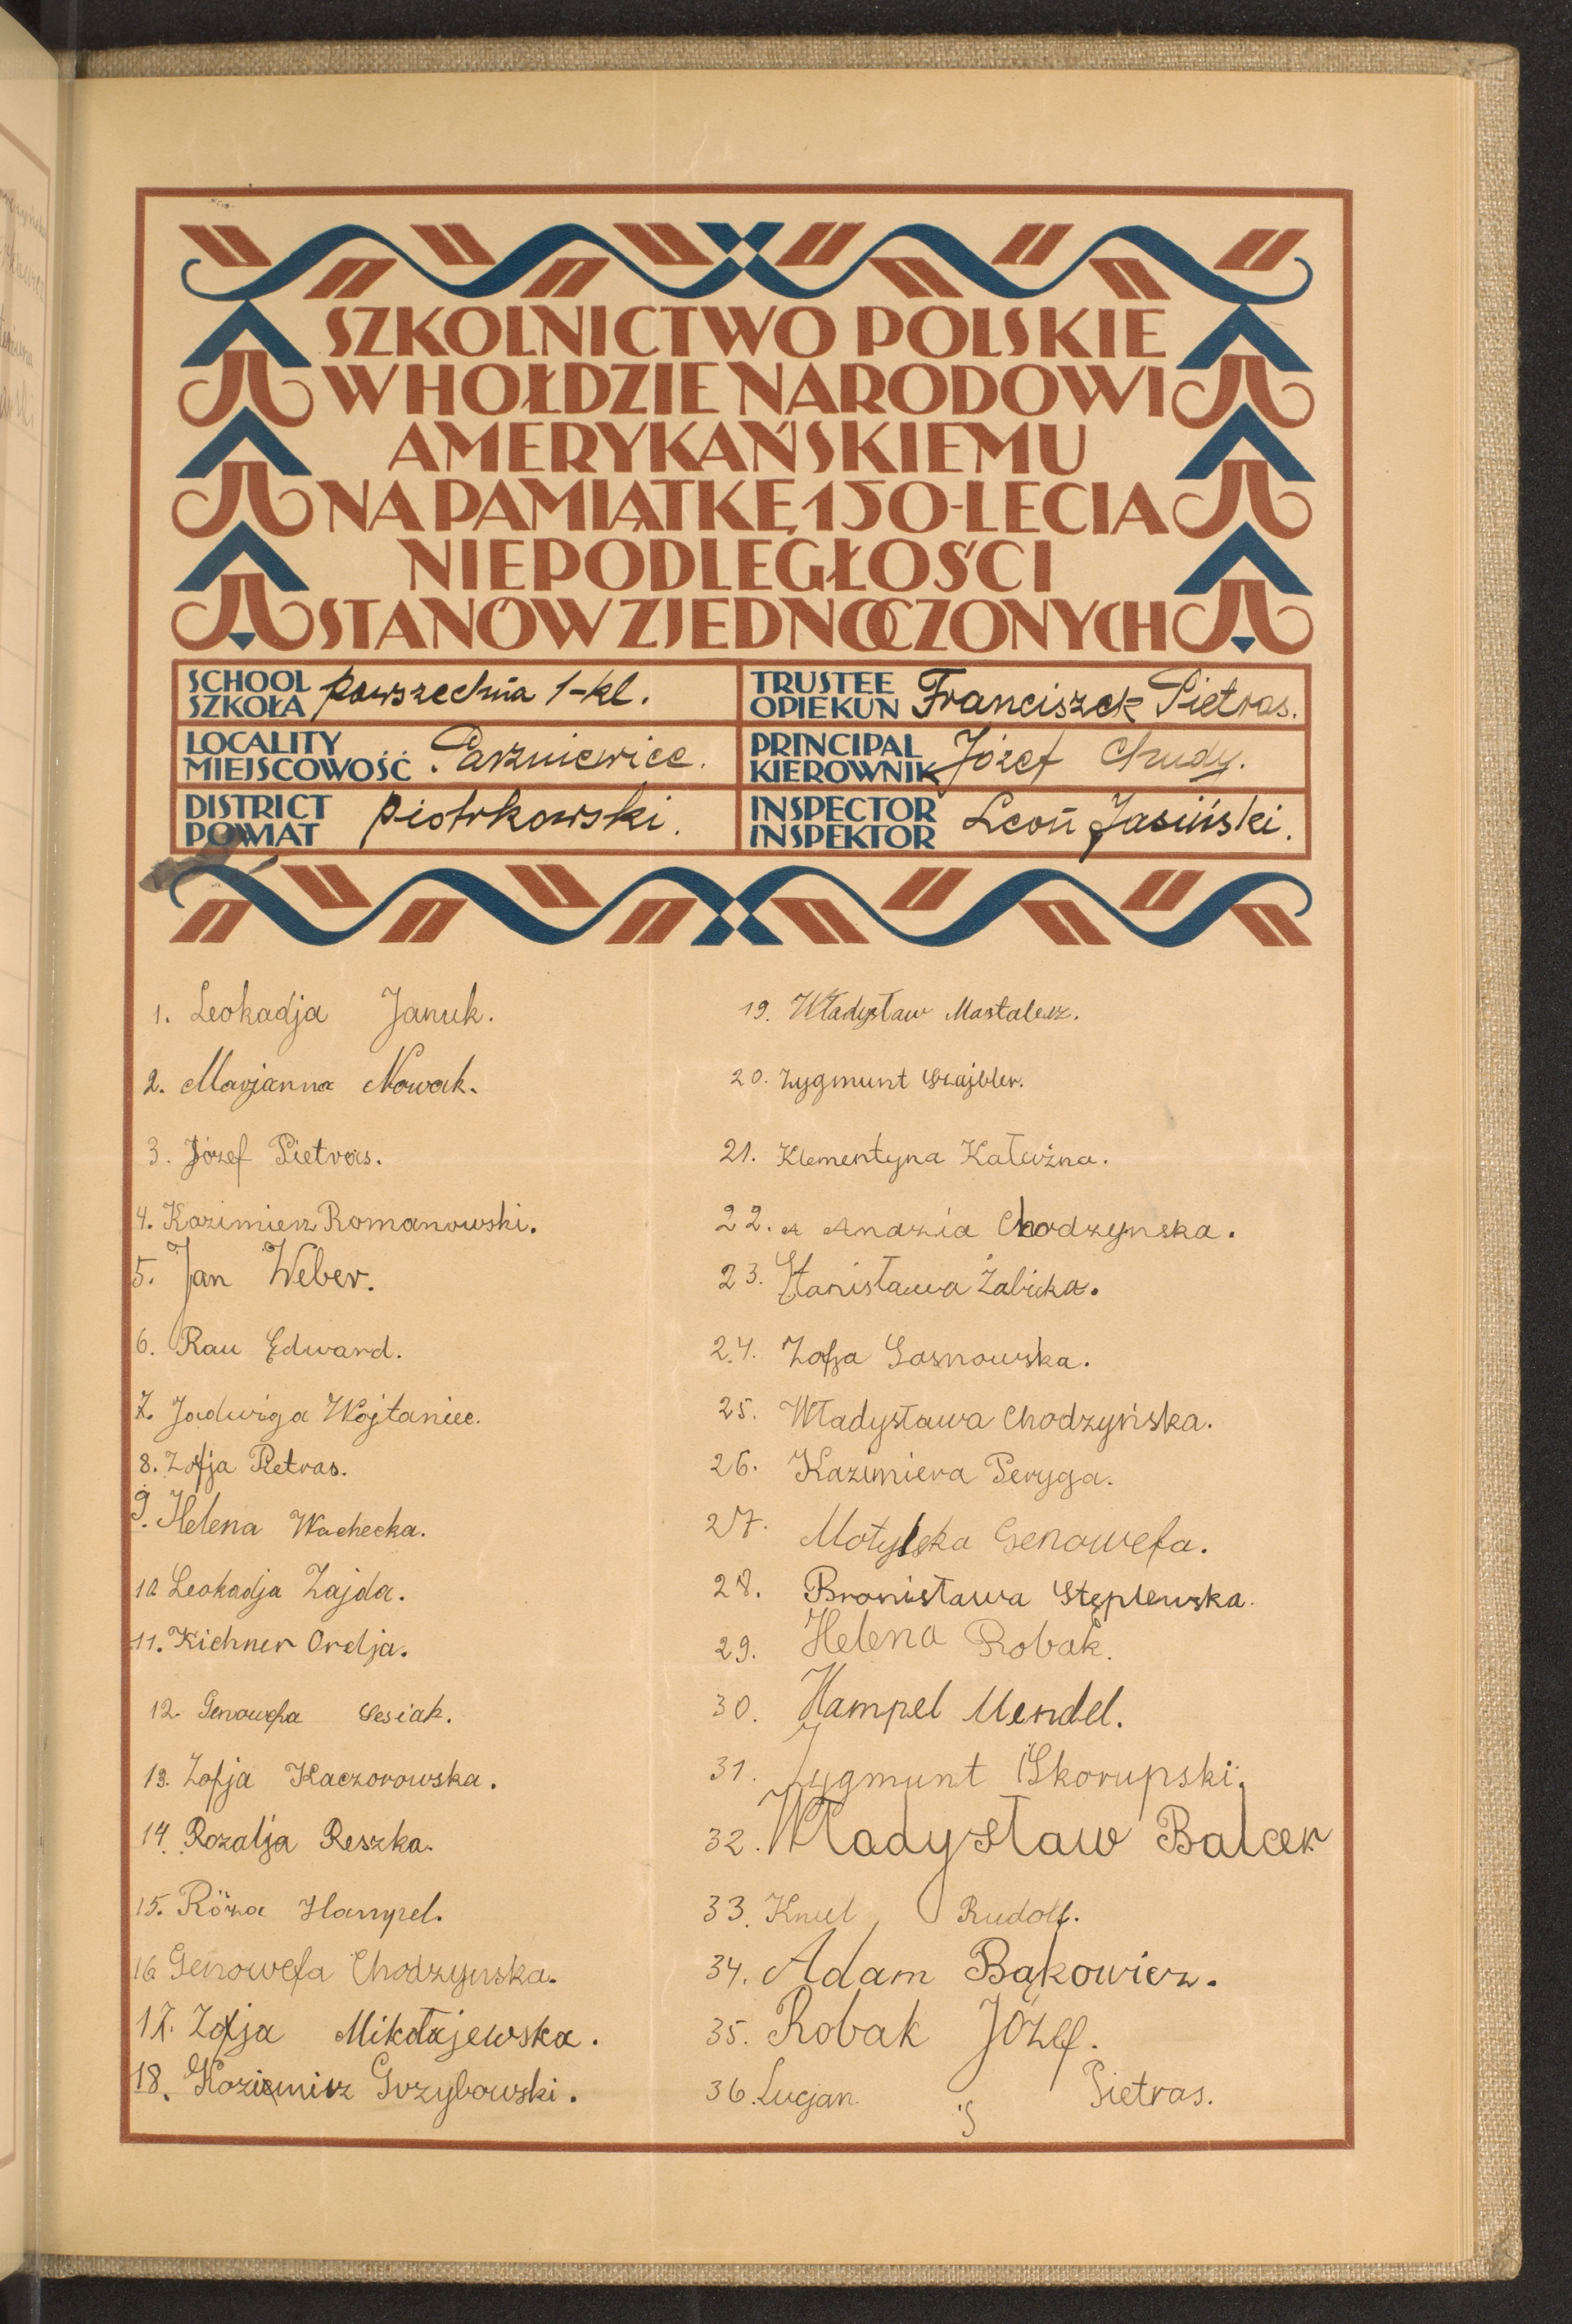 SZKOLNICTWO POLSKIE
W HOŁDZIE NARODOWI
AMERYKAŃSKIEMU
NA PAMIĄTKĘ 150-LECIA
NIEPODLEGŁOŚCI
STANÓW ZJEDNOCZONYCH
SCHOOL
SZKOŁA powszechna 1-kl.
TRUSTEE
OPIEKUN Franciszek Pietras.
LOCALITY
MIEJSCOWOŚĆ Parzniewice.
PRINCIPAL
KIEROWNIK Józef Chudy.
DISTRICT
POWIAT piotrkowski.
INSPECTOR
INSPEKTOR Leon Jasiński.
1. Leokadja Januk.
2. Marjanna Nowak.
3. Józef Pietras.
4. Kazimierz Romanowski.
5. Jan Weber.
6. Rau Edward.
7. Jadwiga Wojtaniec.
8. Zofja Pietras.
9. Helena Wachecka.
10 Leokadja Zajda.
11. Kichner Orelja.
12. Genowefa Lesiak.
13. Zofja Kaczorowska.
14. Rozalja Reszka.
15. Róża Hampel.
16 Genowefa Chodzynska.
17. Zofja Mikołajewska.
18. Kazimierz Grzybowski.
19. Władysław Mastalerz.
20. Zygmunt Szajbler.
21. Klementyna Kałużna.
22. A Anazia Chodzynska.
23. Stanisława Żabicka.
24. Zofja Sosnowska.
25. Władysława Chodzyńska.
26. Kazimiera Peryga.
27. Motylska Genowefa.
28. Bronisława Stęplewska.
29. Helena Robak.
30. Hampel Mendel.
31. Zygmunt Skorupski.
32. Władysław Balcer
33. Knul Rudolf.
34. Adam Bąkowicz.
35. Robak Józef.
36. Lucjan Pietras.